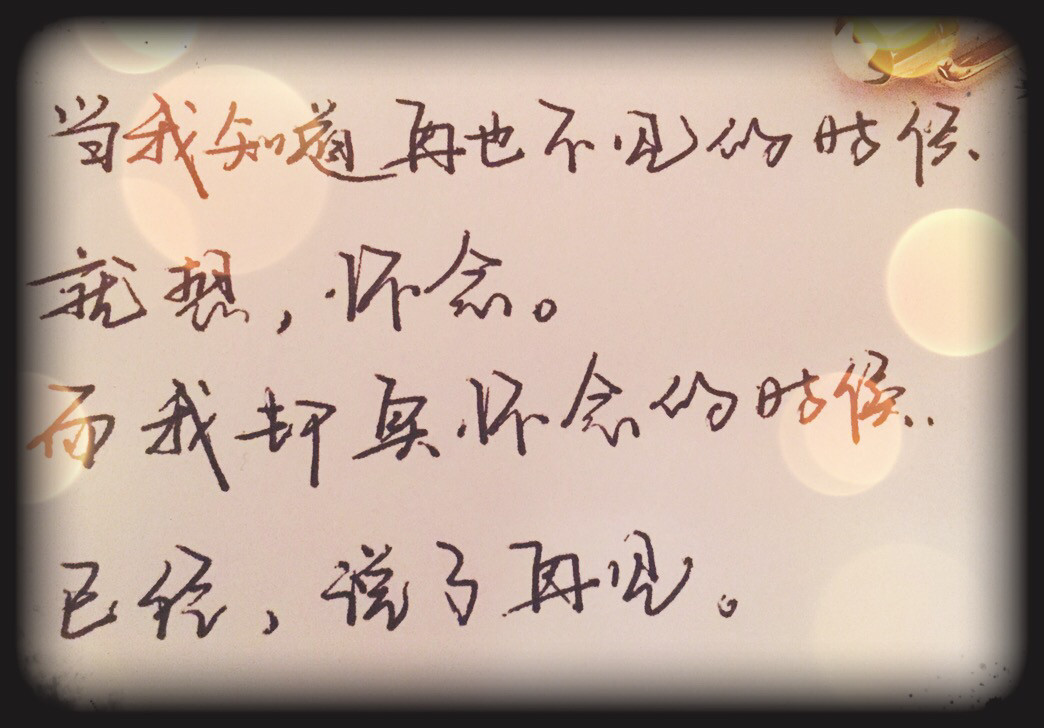 当我知道再也不见的时候.
就想，怀念。
而我却真怀念的时候..
已经，说了再见。